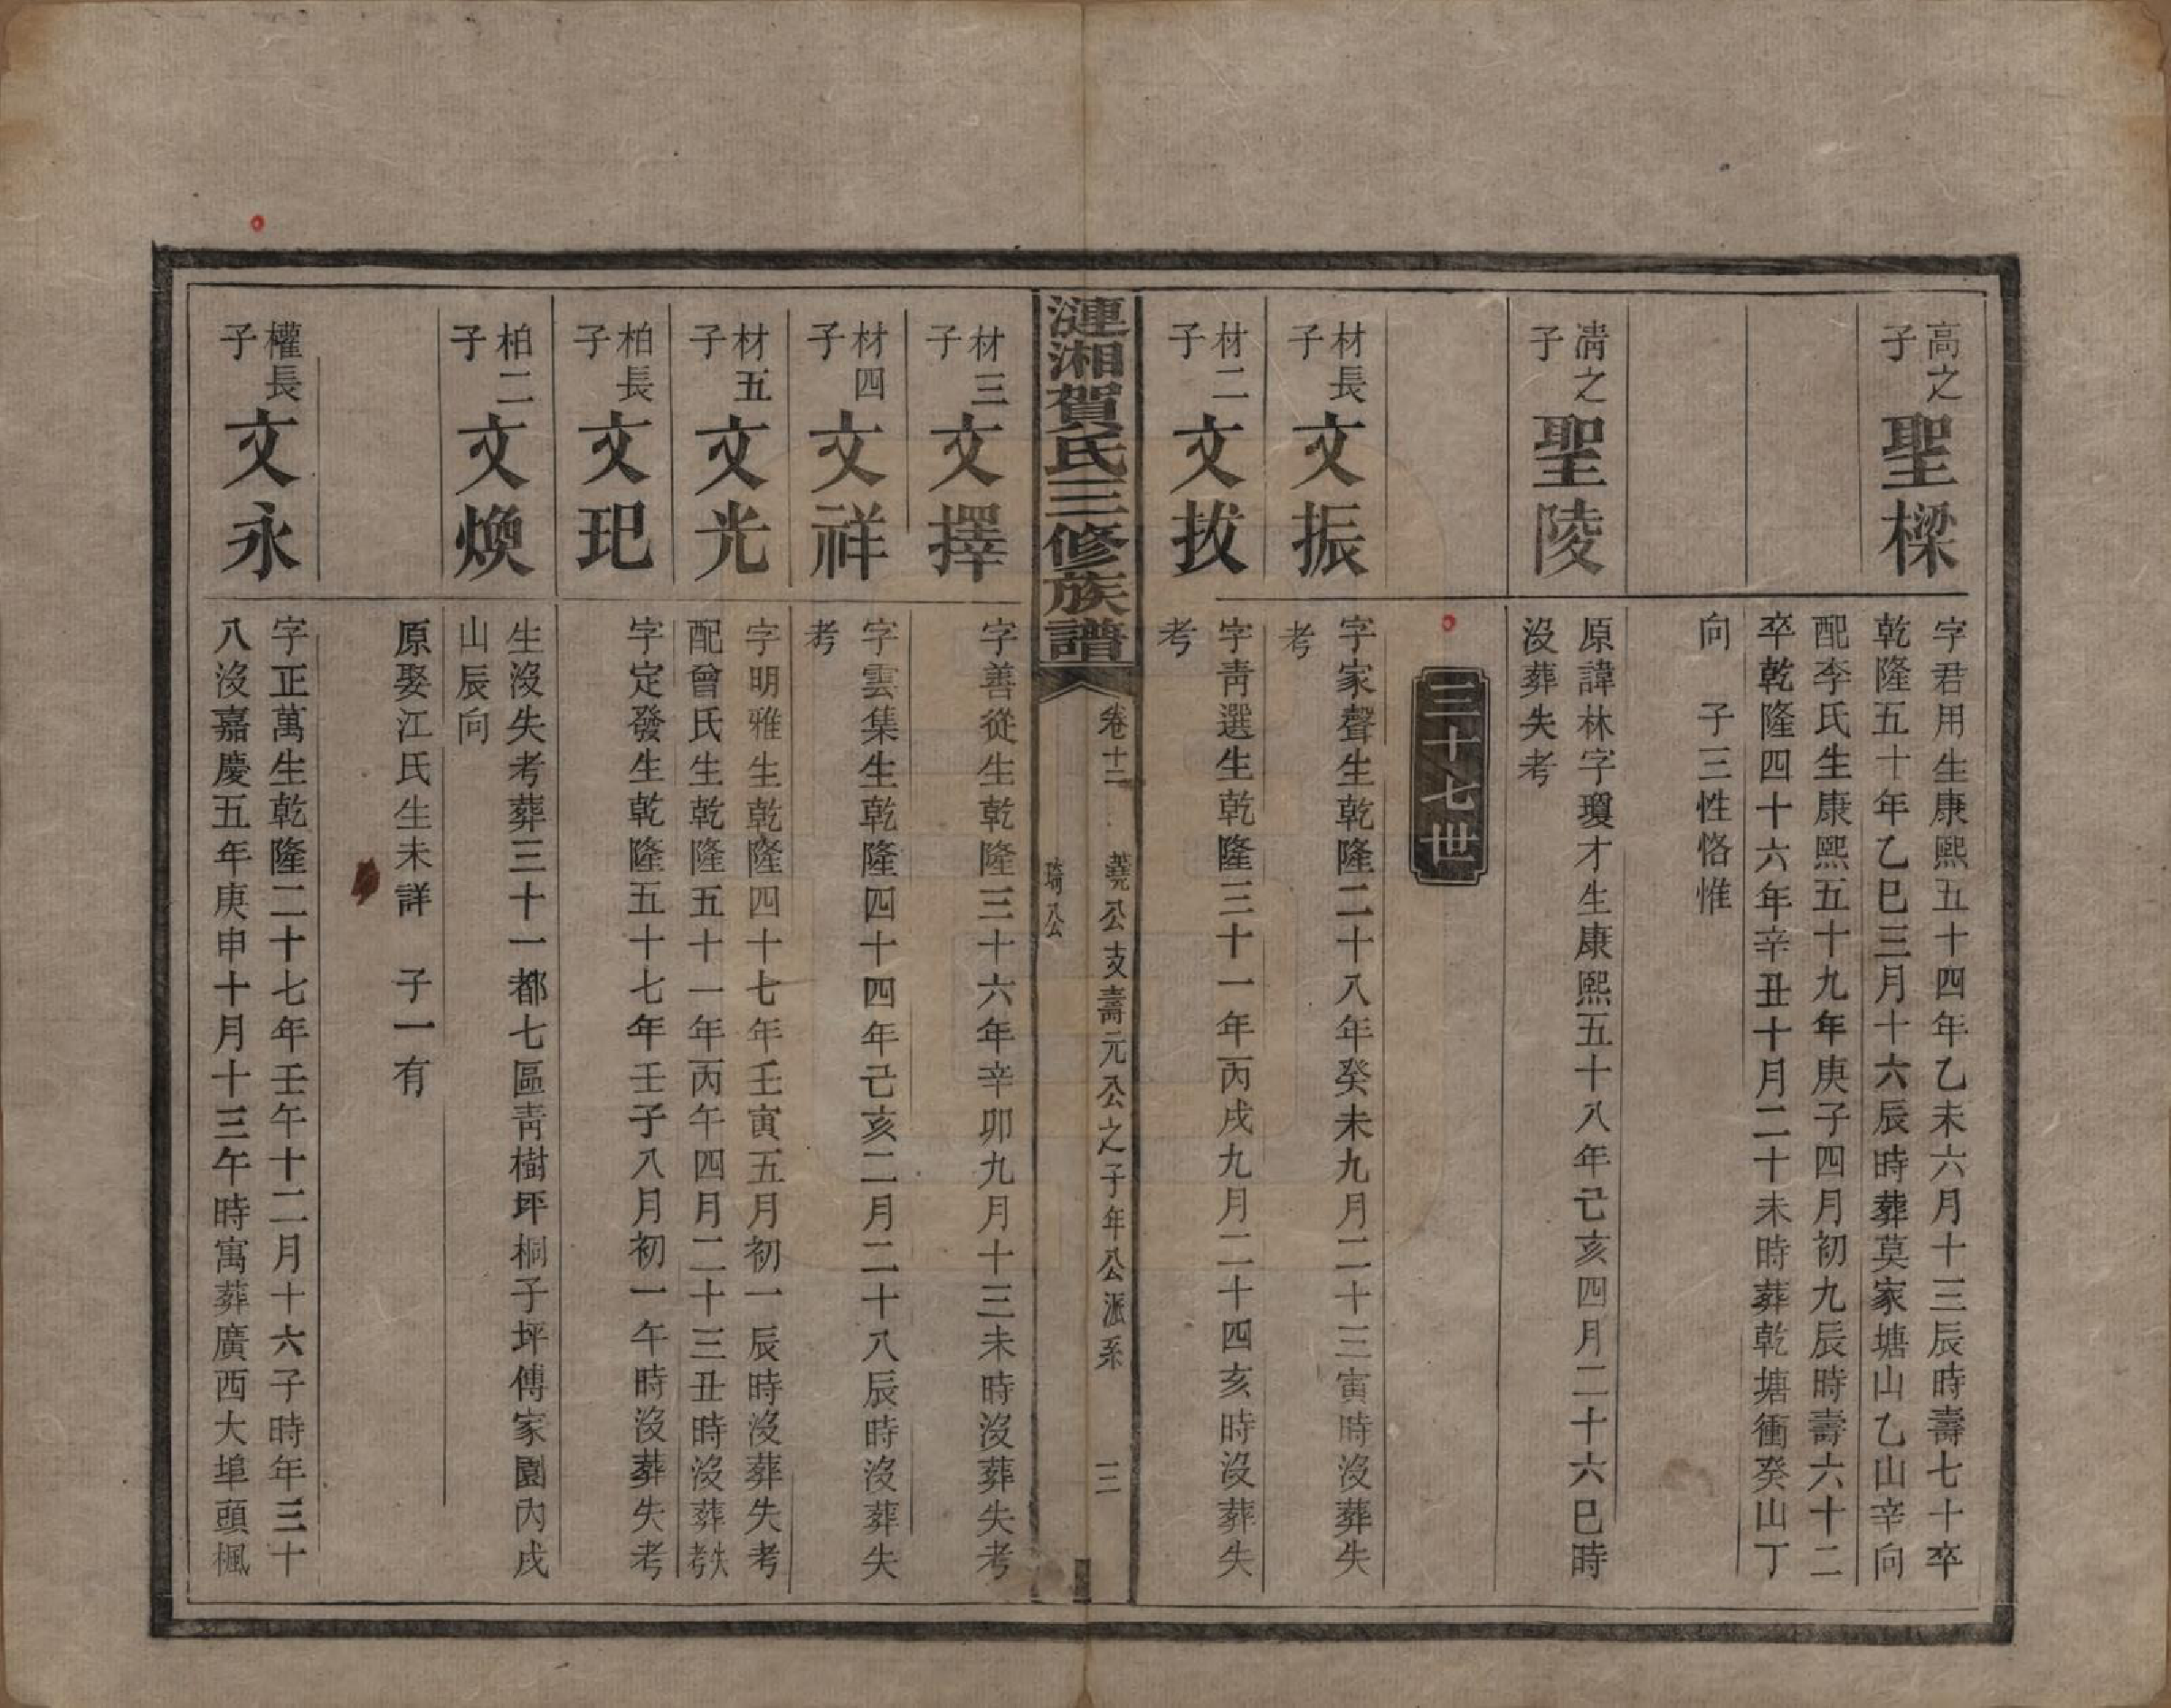 高之
子
聖樑
字君用生康熙五十四年乙未六月十三辰時壽七十卒
乾隆五十年乙巳三月十六辰時葬莫家塘山乙山辛向
配李氏生康熙五十九年庚子四月初九辰時壽六十二
卒乾隆四十六年辛丑十月二十未時葬乾塘衝癸山丁
向　子三性恪惟
清之
子
聖陵
原諱林字瓊才生康熙五十八年己亥四月二十六巳時
沒葬失考
三十七世
材長
子
文振
字家聲生乾隆二十八年癸未九月二十三寅時沒葬失
考
材二
子
文拔
字靑選生乾隆三十一年丙戌九月二十四亥時沒葬失
考
漣湘賀氏三修族譜
卷十二
蕘公支壽元公之子年公派系
琦公
三
材三
子
文擇
字善從生乾隆三十六年辛卯九月十三未時沒葬失考
材四
子
文祥
字雲集生乾隆四十四年己亥二月二十八辰時沒葬失
考
材五
子
文光
字明雅生乾隆四十七年壬寅五月初一辰時沒葬失考
配曾氏生乾隆五十一年丙午四月二十三丑時沒葬失考
柏長
子
文玘
字定發生乾隆五十七年壬子八月初一午時沒葬失考
柏二
子
文煥
生沒失考葬三十一都七區靑樹坪桐子坪傅家園內戌
山辰向
原娶江氏生未詳　子一有
權長
子
文永
字正萬生乾隆二十七年壬午十二月十六子時年三十
八沒嘉慶五年庚申十月十三午時寓葬廣西大埠頭楓